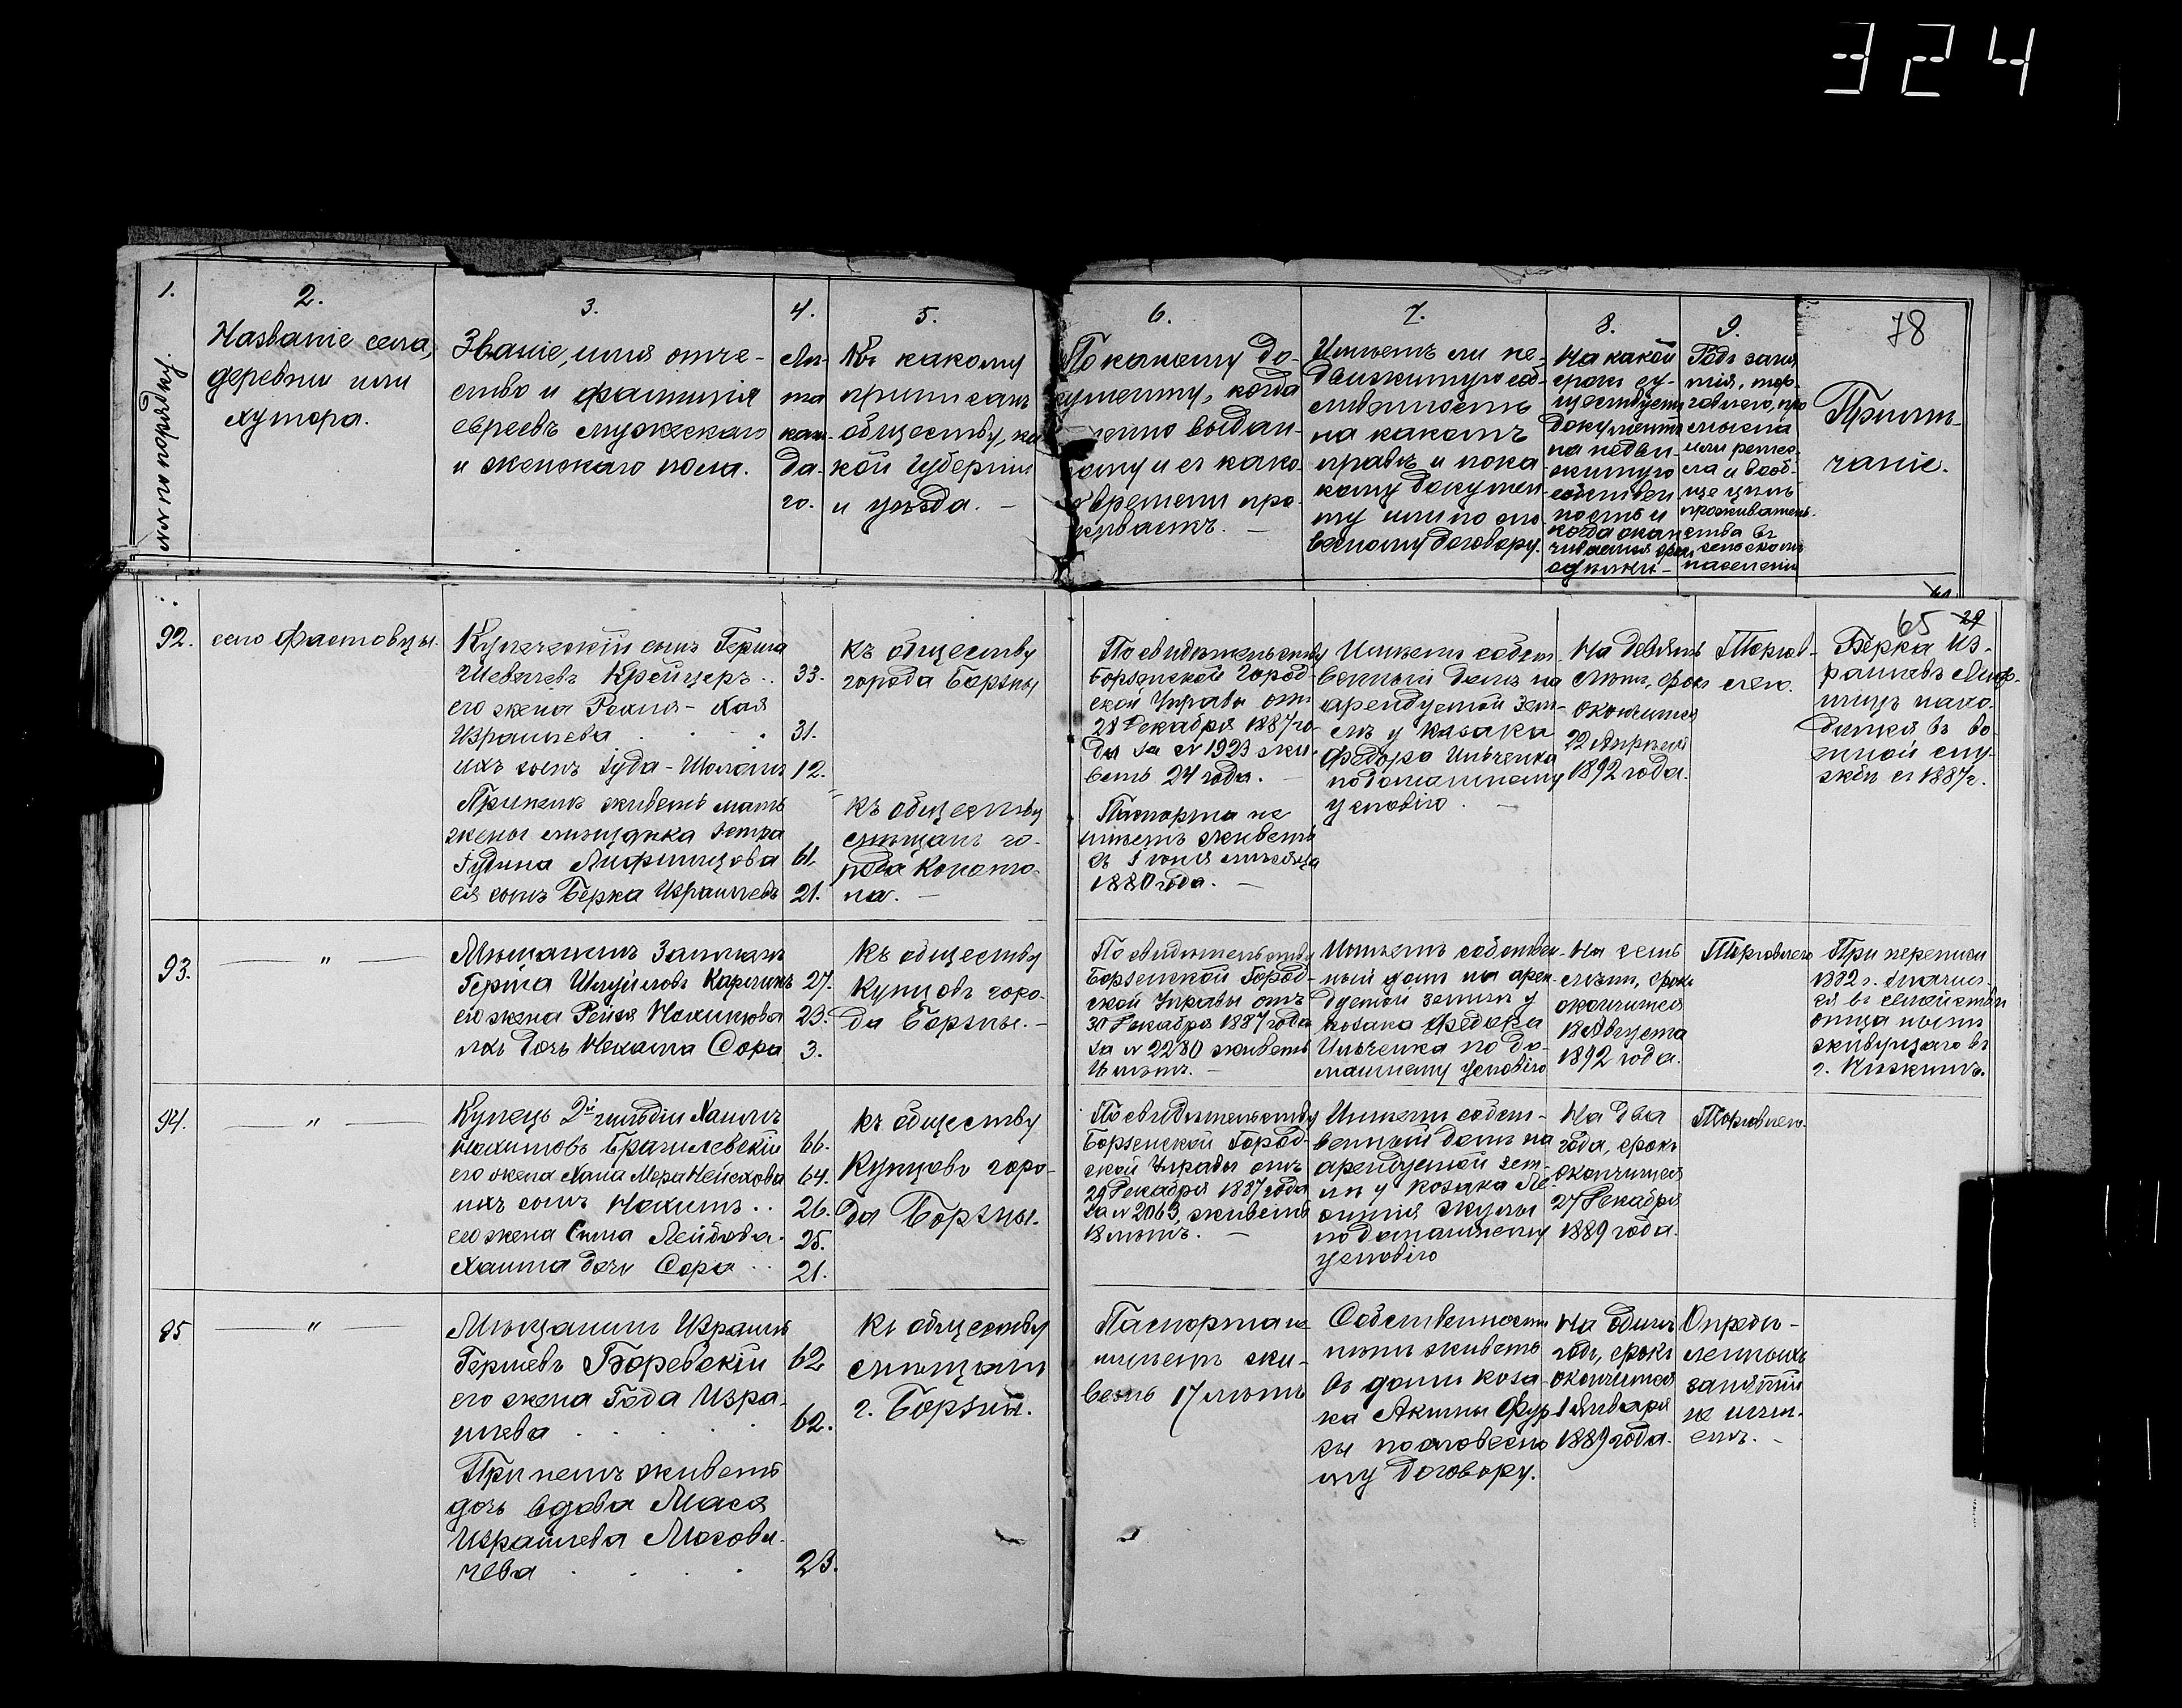 324
1.
№№ по порядку.
2.
Названіе села,
деревни или
хутора.
3.
Званіе, имя отче-
ство и фамилія
евреевъ мужескаго
и женскаго пола.
4.
Лѣ-
та
каж-
да-
го.
5.
Къ какому
приписанъ
обществу, ка
кой губерніи
и уѣзда. —
6.
По какому до-
кументу, когда
выдан-
ному и съ како
времени про
живаетъ. —
7.
Имѣетъ ли не-
движимую соб-
ственность
на какомъ
правѣ и пока
кому докумен-
ту или по сло-
весному договору.
8.
На какой
срокъ су-
ществуетъ
документъ
на недви-
жимую
собствен
ность и
когда окан
чивается срокъ
сдѣлки —
9.
Родъ заня
тія, тор-
говлею, про
мысла
или ремес-
ла и вооб-
ще цѣль
проживатель
ства въ
сельскомъ
населеніи
78
Примѣ-
чаніе.
65 29
92.
село Фастовцы.
Купеческій сынъ Герша
Шевелевъ Крейцеръ .. 33.
его жена Рохля - Хая
Израилева . . . . 31.
ихъ сынъ Іуда - Шоломъ 12.
При нихъ живетъ мать
жены мѣщанка Естра
Іудина Лифшицова 61.
ея сынъ Берка Израилевъ 21.
къ обществу
города Борзны
къ обществу
мѣщанъ го-
рода Коното-
па. —
По свидѣтельству
Борзенской Город-
ской Управы отъ
28 Декабря 1887 го-
да за № 1923 жи-
ветъ 24 года. —
Паспорта не
имѣетъ живетъ
съ Іюня мѣсяца
1880 года. —
Имѣетъ собст-
венный домъ на
арендуемой зем-
лѣ у козака
Федора Ильченка
по домашнему
условію . —
На девять
лѣтъ, срокъ
окончится
22 Апрѣля
1892 года.
Торгов-
лею.
Берка Из-
раилевъ Лиф-
шицъ нахо-
дится въ во-
енной слу-
жбѣ съ 1887 г.
93.
— " —
Мѣщанинъ Залманъ
Герша Шмуйловъ Карлинъ 27.
его жена Рейзя Нохимова 23.
ихъ дочь Нехама Сора 3.
къ обществу
Купцовъ горо-
да Борзны. —
По свидѣтельству
Борзенской Город-
ской Управы отъ
30 Декабря 1887 года
за № 2280 живетъ
16 лѣтъ. —
Имѣетъ собствен-
ный домъ на арен-
дуемой земли у
козака Федора
Ильченка по до-
машнему условію
На семь
лѣтъ, срокъ
окончится
18 Августа
1892 года.
Торговлею
При переписи
1882 г. значил-
ся въ семействѣ
отца нынѣ
живущаго въ
г. Нѣжинѣ.
94.
— " —
Купецъ 2й гильдіи Хаимъ
Нахимовъ Брагилевскій 66.
его жена Хана Мера Нейсхова 64.
ихъ сынъ Нахимъ .. 26.
его жена Сима Лейбова. 25.
Хаима дочь Сора .. 21.
къ обществу
Купцовъ горо-
да Борзны.
По свидѣтельству
Борзенской Город-
ской Управы отъ
29 Декабря 1887 года
за № 2063, живетъ
18 лѣтъ. —
Имѣетъ собст-
венный домъ на
арендуемой зем-
ли у козака Ле-
онтія Жулы
по домашнему
условію
На два
года, срокъ
окончится
27 Декабря
1889 года.
Торговлею.
95
— " —
Мѣщанинъ Израиль
Гершевъ Боревскій 62
его жена Года Изра-
илева . . . . 62.
При немъ живетъ
дочь вдова Мася
Израилева Масови-
чева . . . . 23.
къ обществу
мѣщанъ
г. Борзны.
Паспорта не
имѣетъ жи-
ветъ 17 лѣтъ
Собственности
нѣтъ живетъ
въ домѣ коза-
ка Акима Фур
сы по словесно
му договору.
На одинъ
годъ, срокъ
окончится
1 Января
1889 года.
Опредѣ-
ленныхъ
занятій
не имѣ-
етъ. —